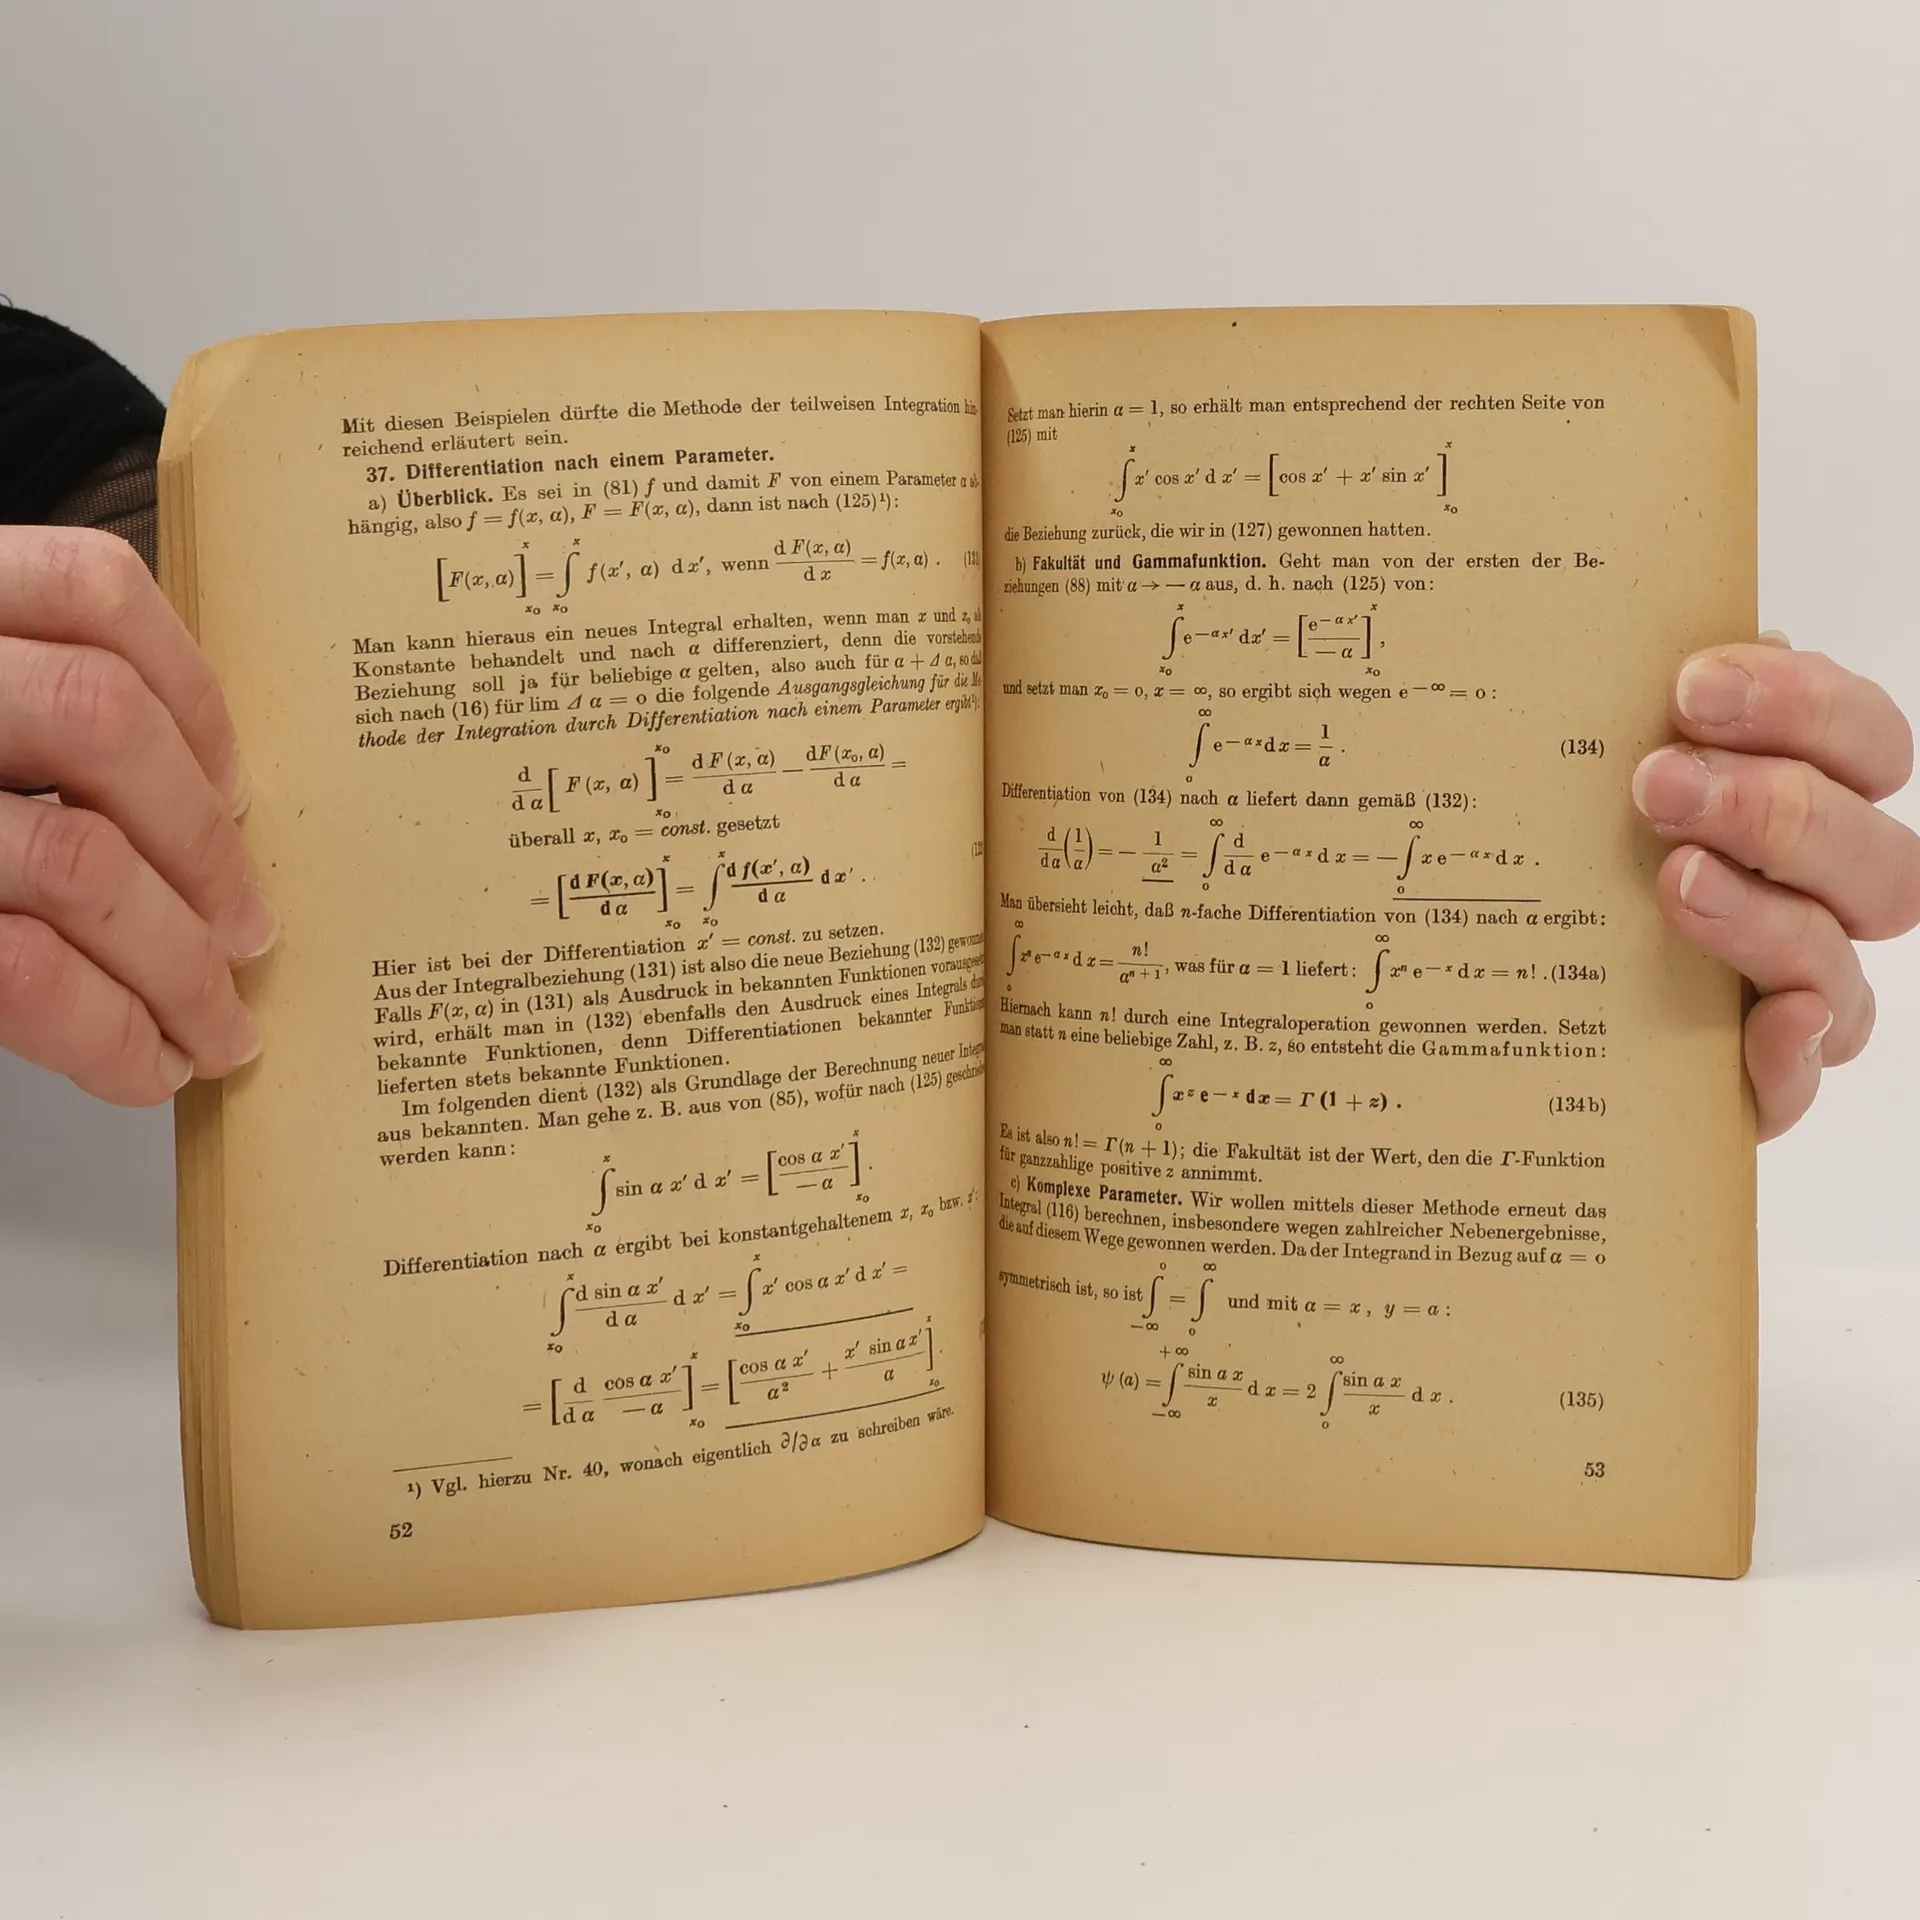 Mit diesen Beispielen dürfte die Methode der teilweisen Integration hin-
reichend erläutert sein.
37. Differentiation nach einem Parameter.
a) Überblick. Es sei in (81) f und damit F von einem Parameter α ab-
hängig, also f = f(x, α), F = F(x, α), dann ist nach (125)¹):
[F(x, α)]_{x₀}^{x} = ∫_{x₀}^{x} f(x′, α) dx′, wenn d F(x, α)/d x = f(x, α) .
Man kann hieraus ein neues Integral erhalten, wenn man x und x₀ als
Konstante behandelt und nach α differenziert, denn die vorstehende
Beziehung soll ja für beliebige α gelten, also auch für α + Δ α, so daß
sich nach (16) für lim Δ α = o die folgende Ausgangsgleichung für die Me-
thode der Integration durch Differentiation nach einem Parameter ergibt¹):
d/d α [F (x, α)]_{x₀}^{x₀} = d F (x, α)/d α − dF (x₀, α)/d α =
überall x, x₀ = const. gesetzt
= [d F(x, α)/d α]_{x₀}^{x} = ∫_{x₀}^{x} d f(x′, α)/d α dx′ .
Hier ist bei der Differentiation x′ = const. zu setzen.
Aus der Integralbeziehung (131) ist also die neue Beziehung (132) gewonnen
Falls F(x, α) in (131) als Ausdruck in bekannten Funktionen vorausgesetzt
wird, erhält man in (132) ebenfalls den Ausdruck eines Integrals durch
bekannte Funktionen, denn Differentiationen bekannter Funktionen
lieferten stets bekannte Funktionen.
Im folgenden dient (132) als Grundlage der Berechnung neuer Integrale
aus bekannten. Man gehe z. B. aus von (85), wofür nach (125) geschrieben
werden kann:
∫_{x₀}^{x} sin α x′ d x′ = [cos α x′/− α]_{x₀}^{x} .
Differentiation nach α ergibt bei konstantgehaltenem x, x₀ bzw. x′:
∫_{x₀}^{x} d sin α x′/d α d x′ = ∫_{x₀}^{x} x′ cos α x′ d x′ =
= [d/d α cos α x′/− α]_{x₀}^{x} = [cos α x′/α² + x′ sin α x′/α]_{x₀}^{x} .
¹) Vgl. hierzu Nr. 40, wonach eigentlich ∂/∂ α zu schreiben wäre.
52
Setzt man hierin α = 1, so erhält man entsprechend der rechten Seite von
(125) mit
∫_{x₀}^{x} x′ cos x′ d x′ = [cos x′ + x′ sin x′]_{x₀}^{x}
die Beziehung zurück, die wir in (127) gewonnen hatten.
b) Fakultät und Gammafunktion. Geht man von der ersten der Be-
ziehungen (88) mit α → — α aus, d. h. nach (125) von:
∫_{x₀}^{x} e^{−αx′} dx′ = [e^{−αx′}/− α]_{x₀}^{x} ,
und setzt man x₀ = o, x = ∞, so ergibt sich wegen e^{−∞} = o :
∫_{o}^{∞} e^{−αx} dx = 1/α . (134)
Differentiation von (134) nach α liefert dann gemäß (132):
d/dα (1/α) = − 1/α² = ∫_{o}^{∞} d/dα e^{−αx} d x = − ∫_{o}^{∞} x e^{−αx} d x .
Man übersieht leicht, daß n-fache Differentiation von (134) nach α ergibt:
∫_{o}^{∞} xⁿ e^{−αx} d x = n!/α^{n + 1}, was für α = 1 liefert: ∫_{o}^{∞} xⁿ e^{−x} d x = n! . (134a)
Hiernach kann n! durch eine Integraloperation gewonnen werden. Setzt
man statt n eine beliebige Zahl, z. B. z, so entsteht die Gammafunktion:
∫_{o}^{∞} x^{z} e^{−x} dx = Γ (1 + z) . (134b)
Es ist also n! = Γ(n + 1); die Fakultät ist der Wert, den die Γ-Funktion
für ganzzahlige positive z annimmt.
c) Komplexe Parameter. Wir wollen mittels dieser Methode erneut das
Integral (116) berechnen, insbesondere wegen zahlreicher Nebenergebnisse,
die auf diesem Wege gewonnen werden. Da der Integrand in Bezug auf α = o
symmetrisch ist, so ist ∫_{−∞}^{o} = ∫_{o}^{∞} und mit α = x, y = a :
ψ (a) = ∫_{−∞}^{+∞} sin a x/x d x = 2 ∫_{o}^{∞} sin a x/x d x . (135)
53